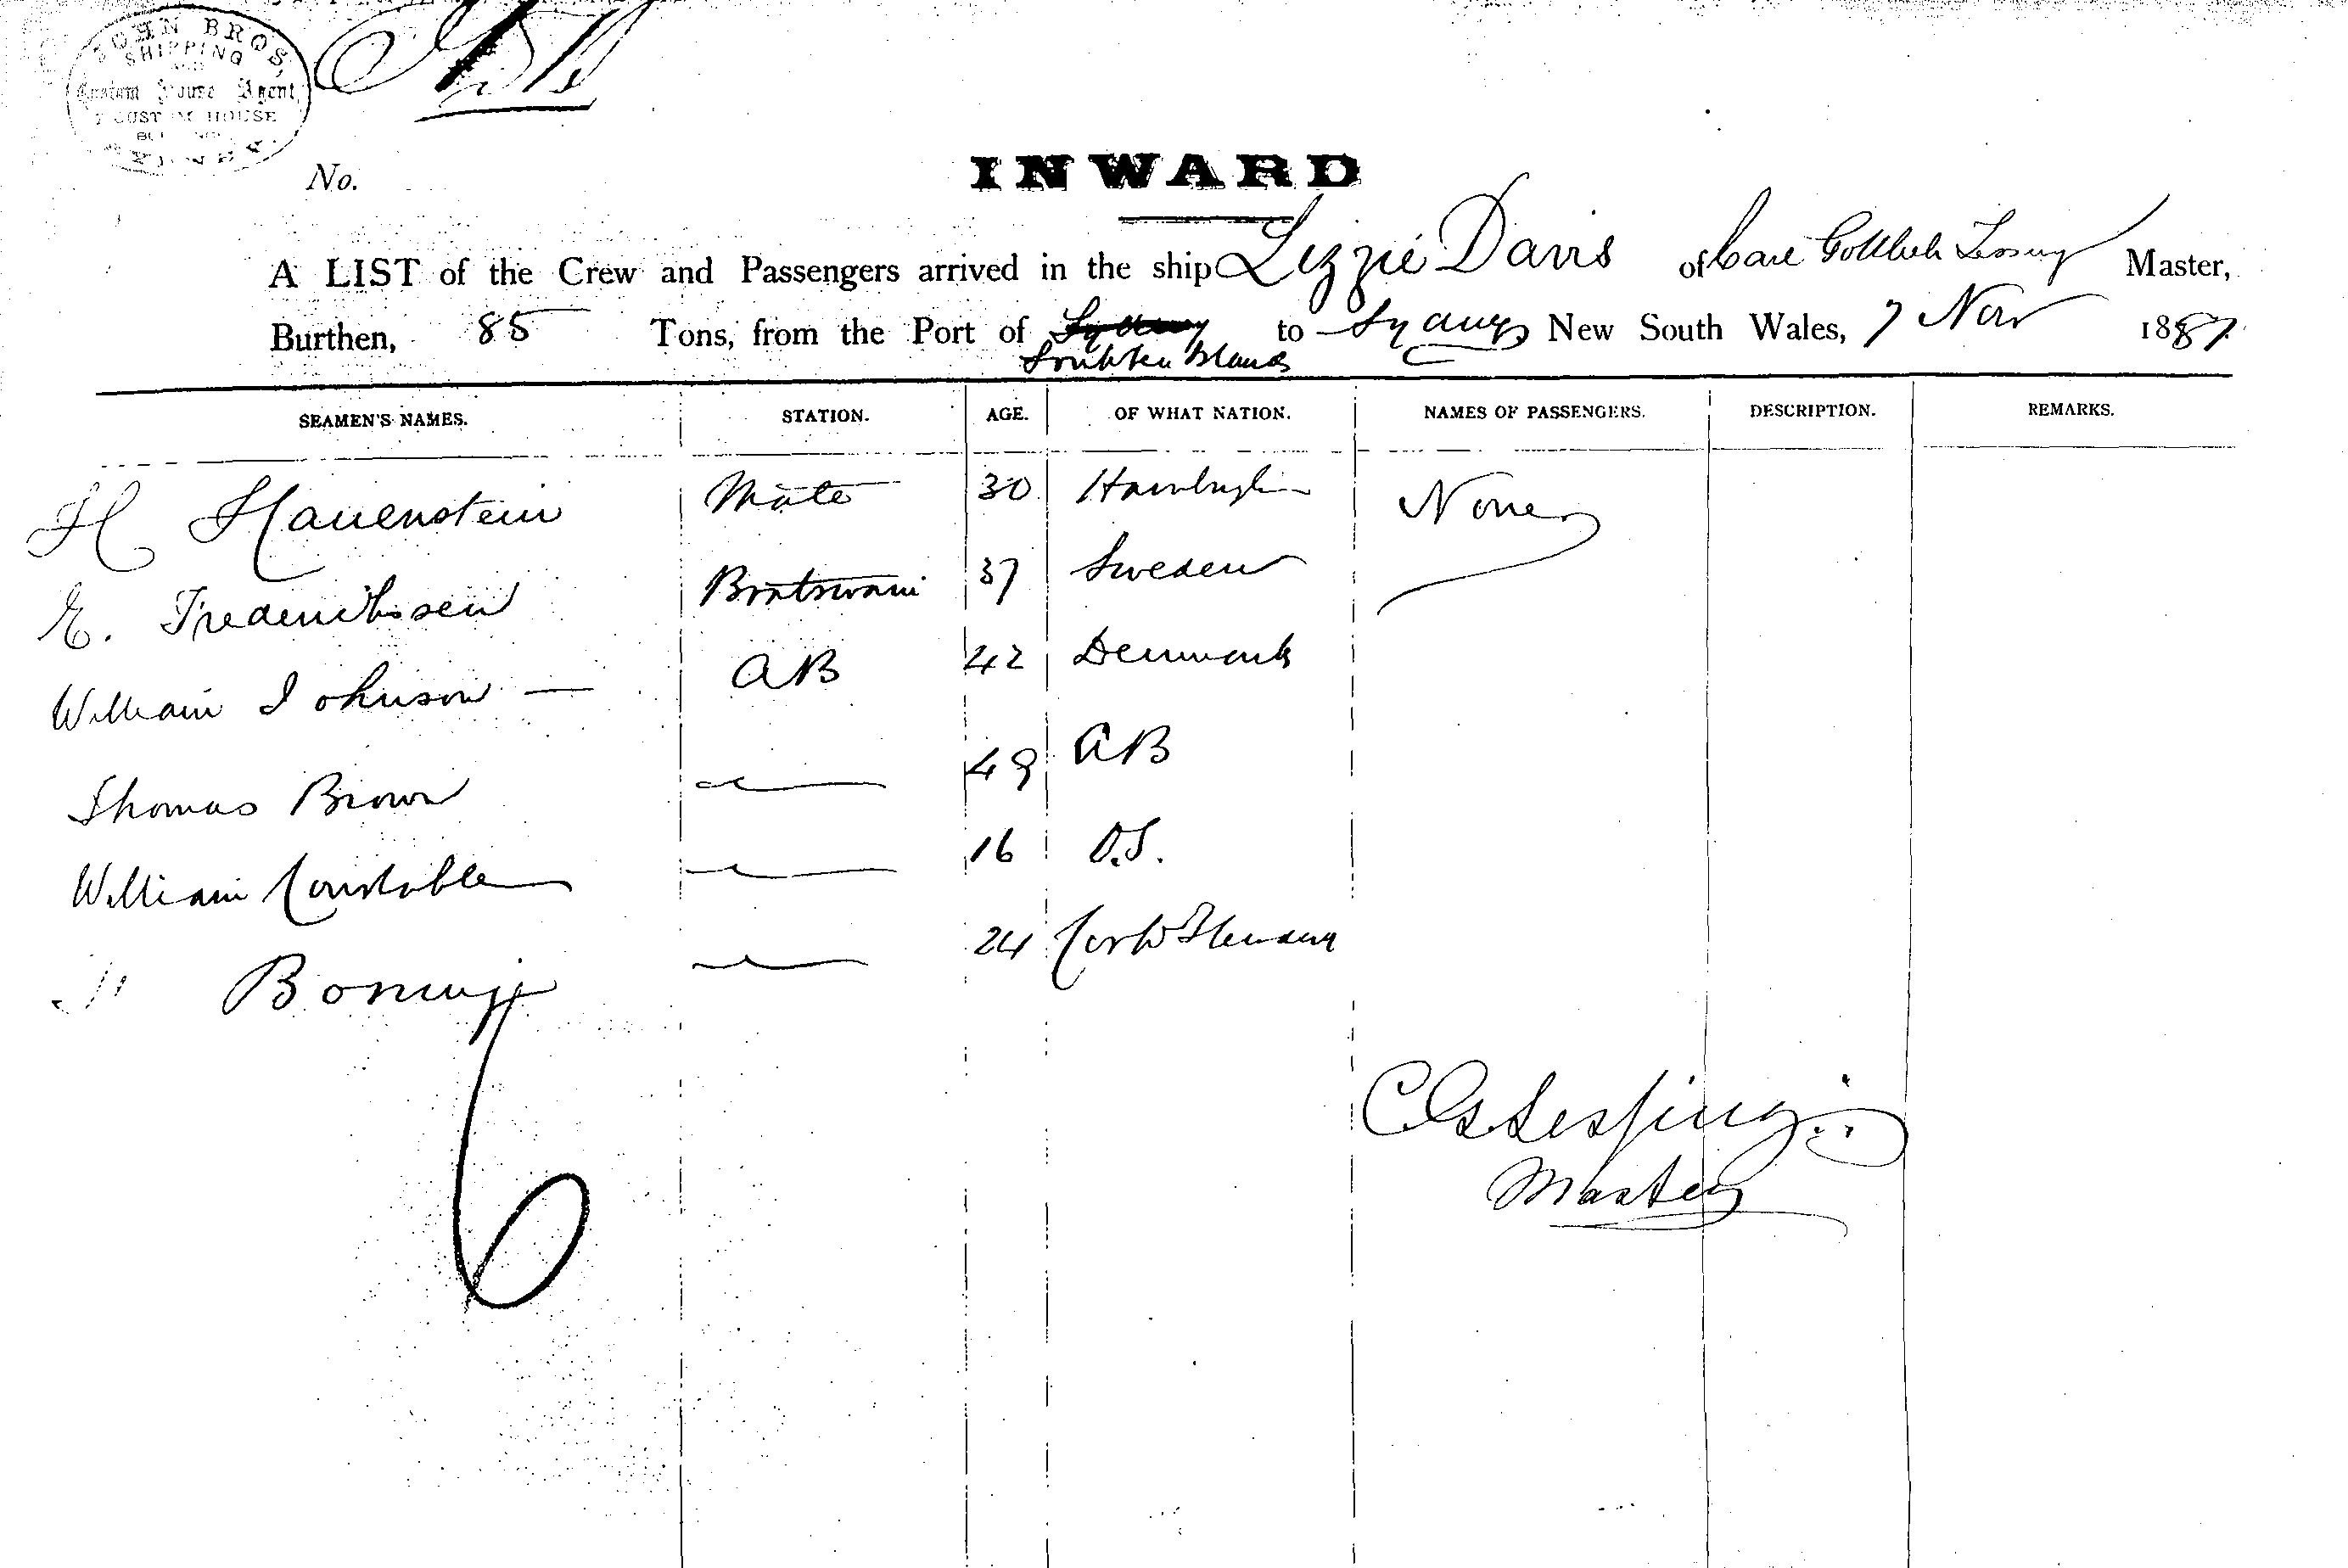 JOHN BROS,
SHIPPING
AND
Custom House Agent,
7 CUSTOM HOUSE
SYDNEY.
No.
INWARD
A LIST of the Crew and Passengers arrived in the ship Lizzie Davis of Carl Gottlieb Lessing Master,
Burthen, 85 Tons, from the Port of Sydney to Sydney New South Wales, 7 Nov 1887
South Sea Islands
SEAMEN'S NAMES. STATION. AGE. OF WHAT NATION. NAMES OF PASSENGERS. DESCRIPTION. REMARKS.
H Hauenstein Mate 30 None
E. Fredericksen Boatswain 37 Sweden
William Johnson — AB 42 Denmark
Thomas Brown 49 AB
William Constable 16 O.S.
24
6
C G Lessing
Master